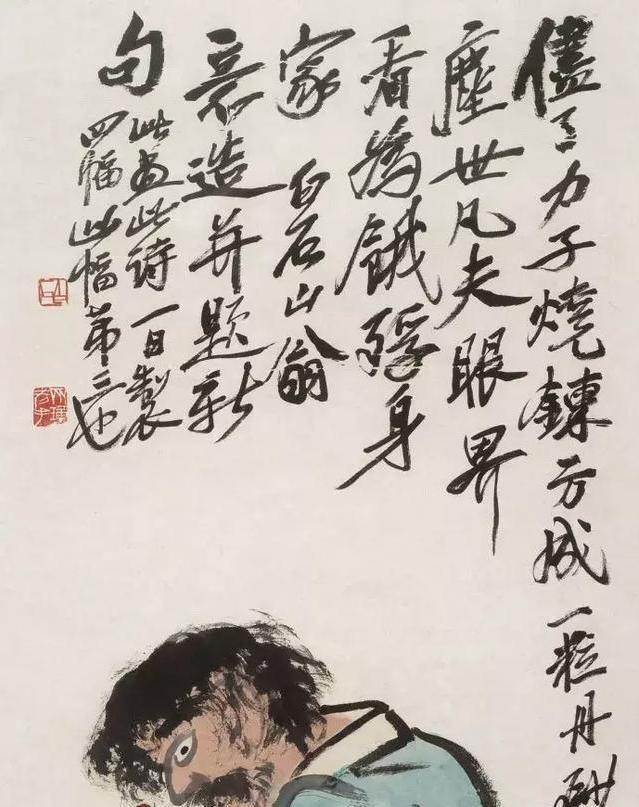 儘了力子燒鍊方成一粒丹砂
塵世凡夫眼界
看為餓殍身
家 白石山翁
意造并題新
句 此畫此詩一日製
四幅此幅第三也